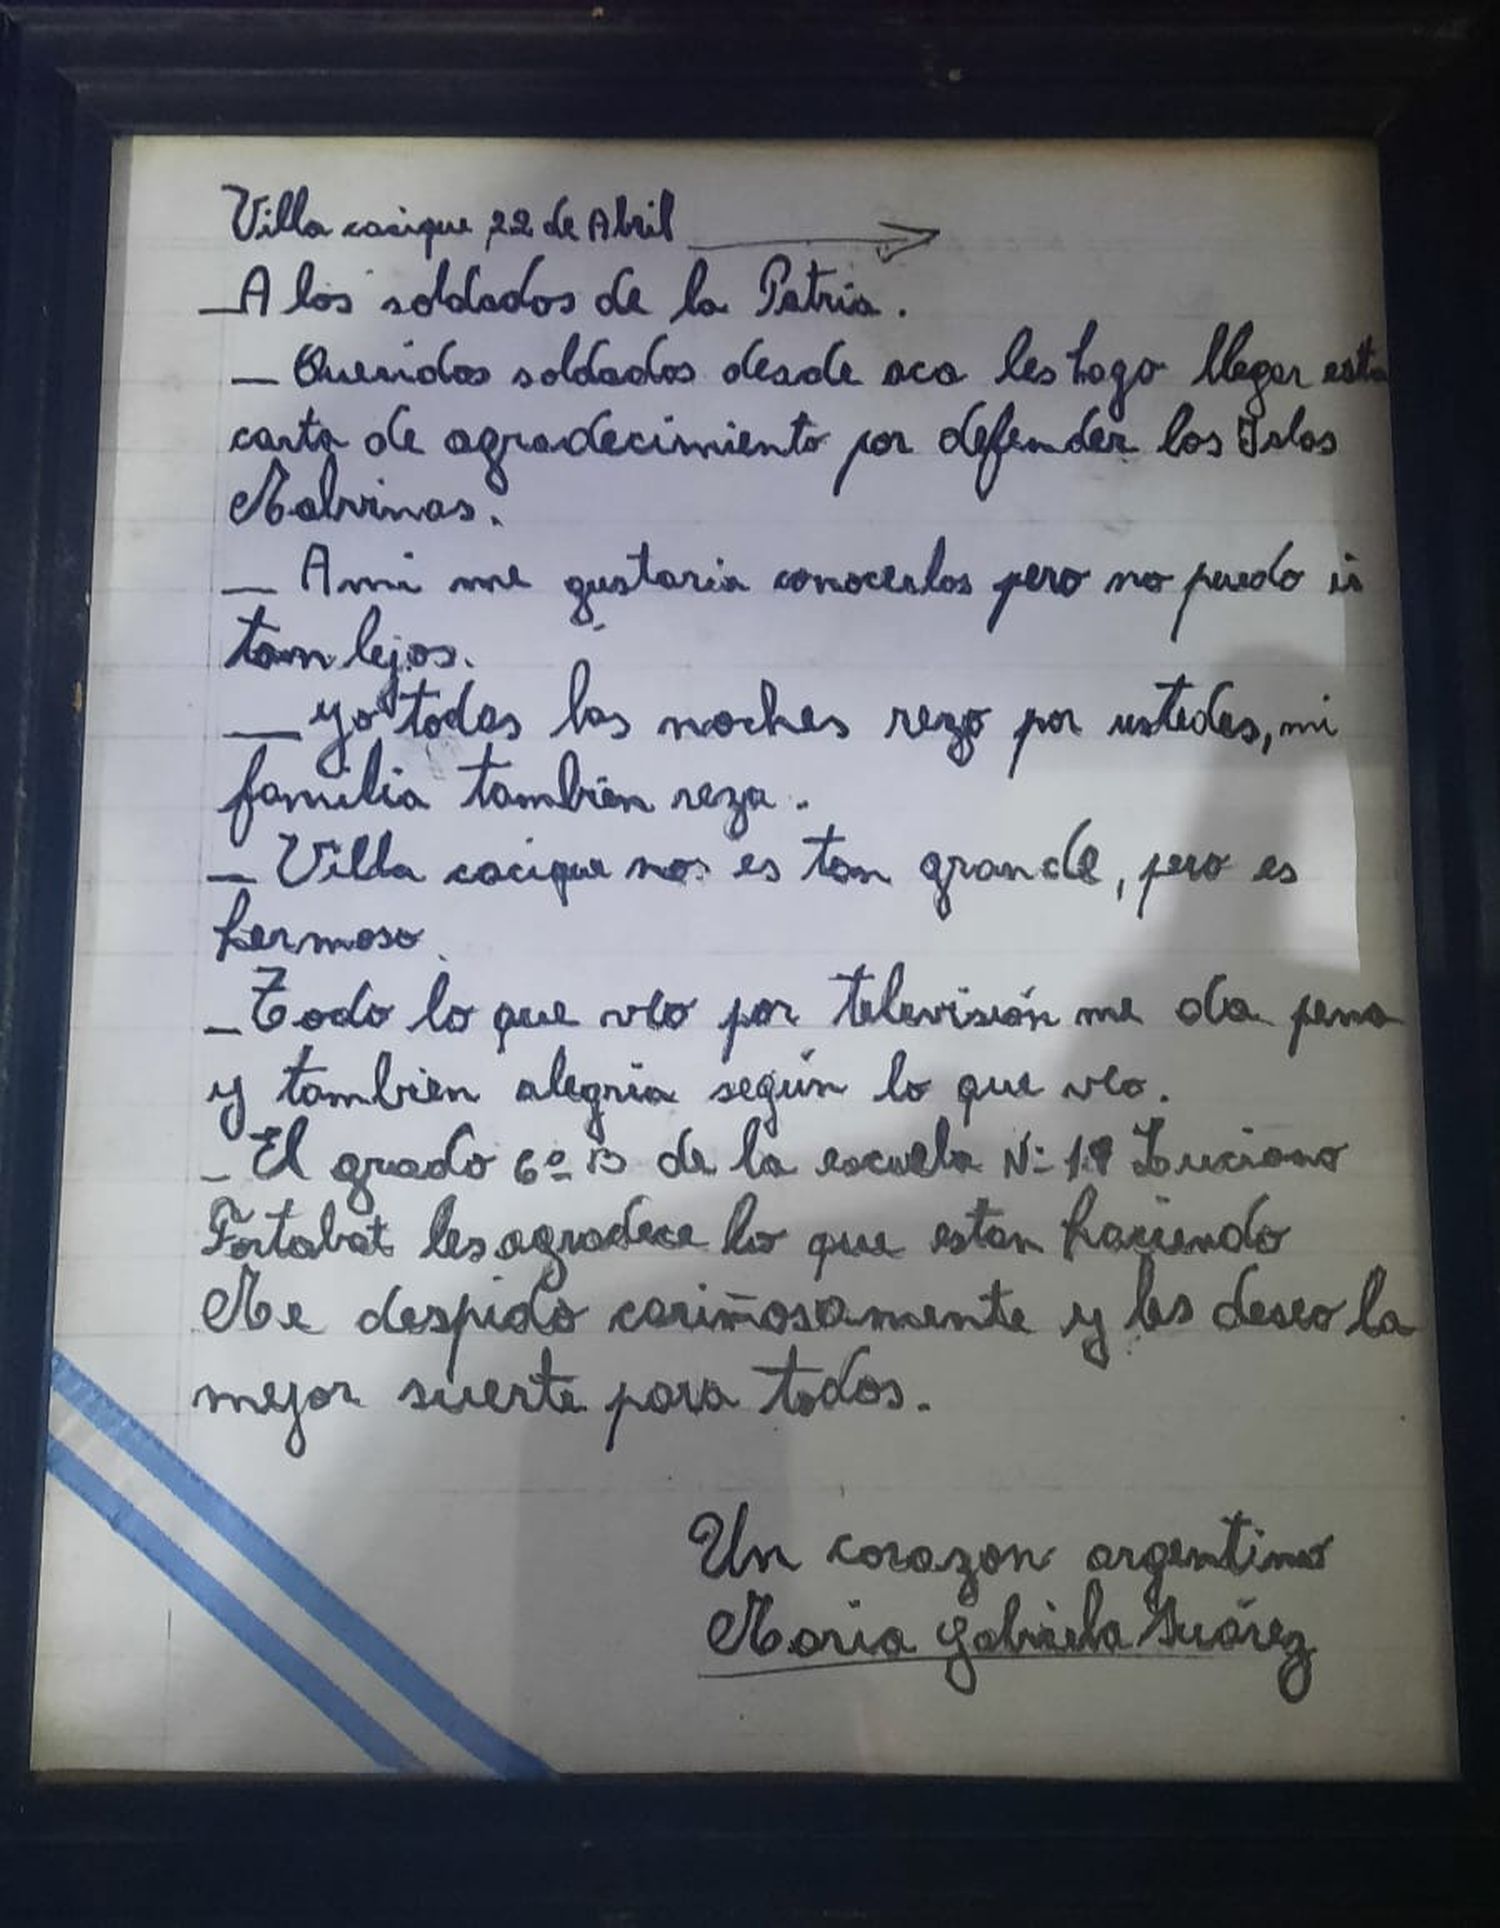 Villa cacique 22 de Abril
_A los soldados de la Patria.
_ Queridos soldados desde aca les hago llegar esta
carta de agradecimiento por defender las Islas
Malvinas.
_ A mi me gustaria conocerlos pero no puedo ir
tam lejos.
_ yo todas las noches rezo por ustedes, mi
familia tambien reza.
_ Villa cacique nos es tan grande, pero es
hermoso.
_Todo lo que veo por televisión me da pena
y tambien alegria según lo que veo.
_El grado 6º B de la escuela Nº Luciano
Fortabat les agradece lo que estan haciendo
Me despido cariñosamente y les deseo la
mejor suerte para todos.
Un corazon argentino
Maria Gabriela Suárez